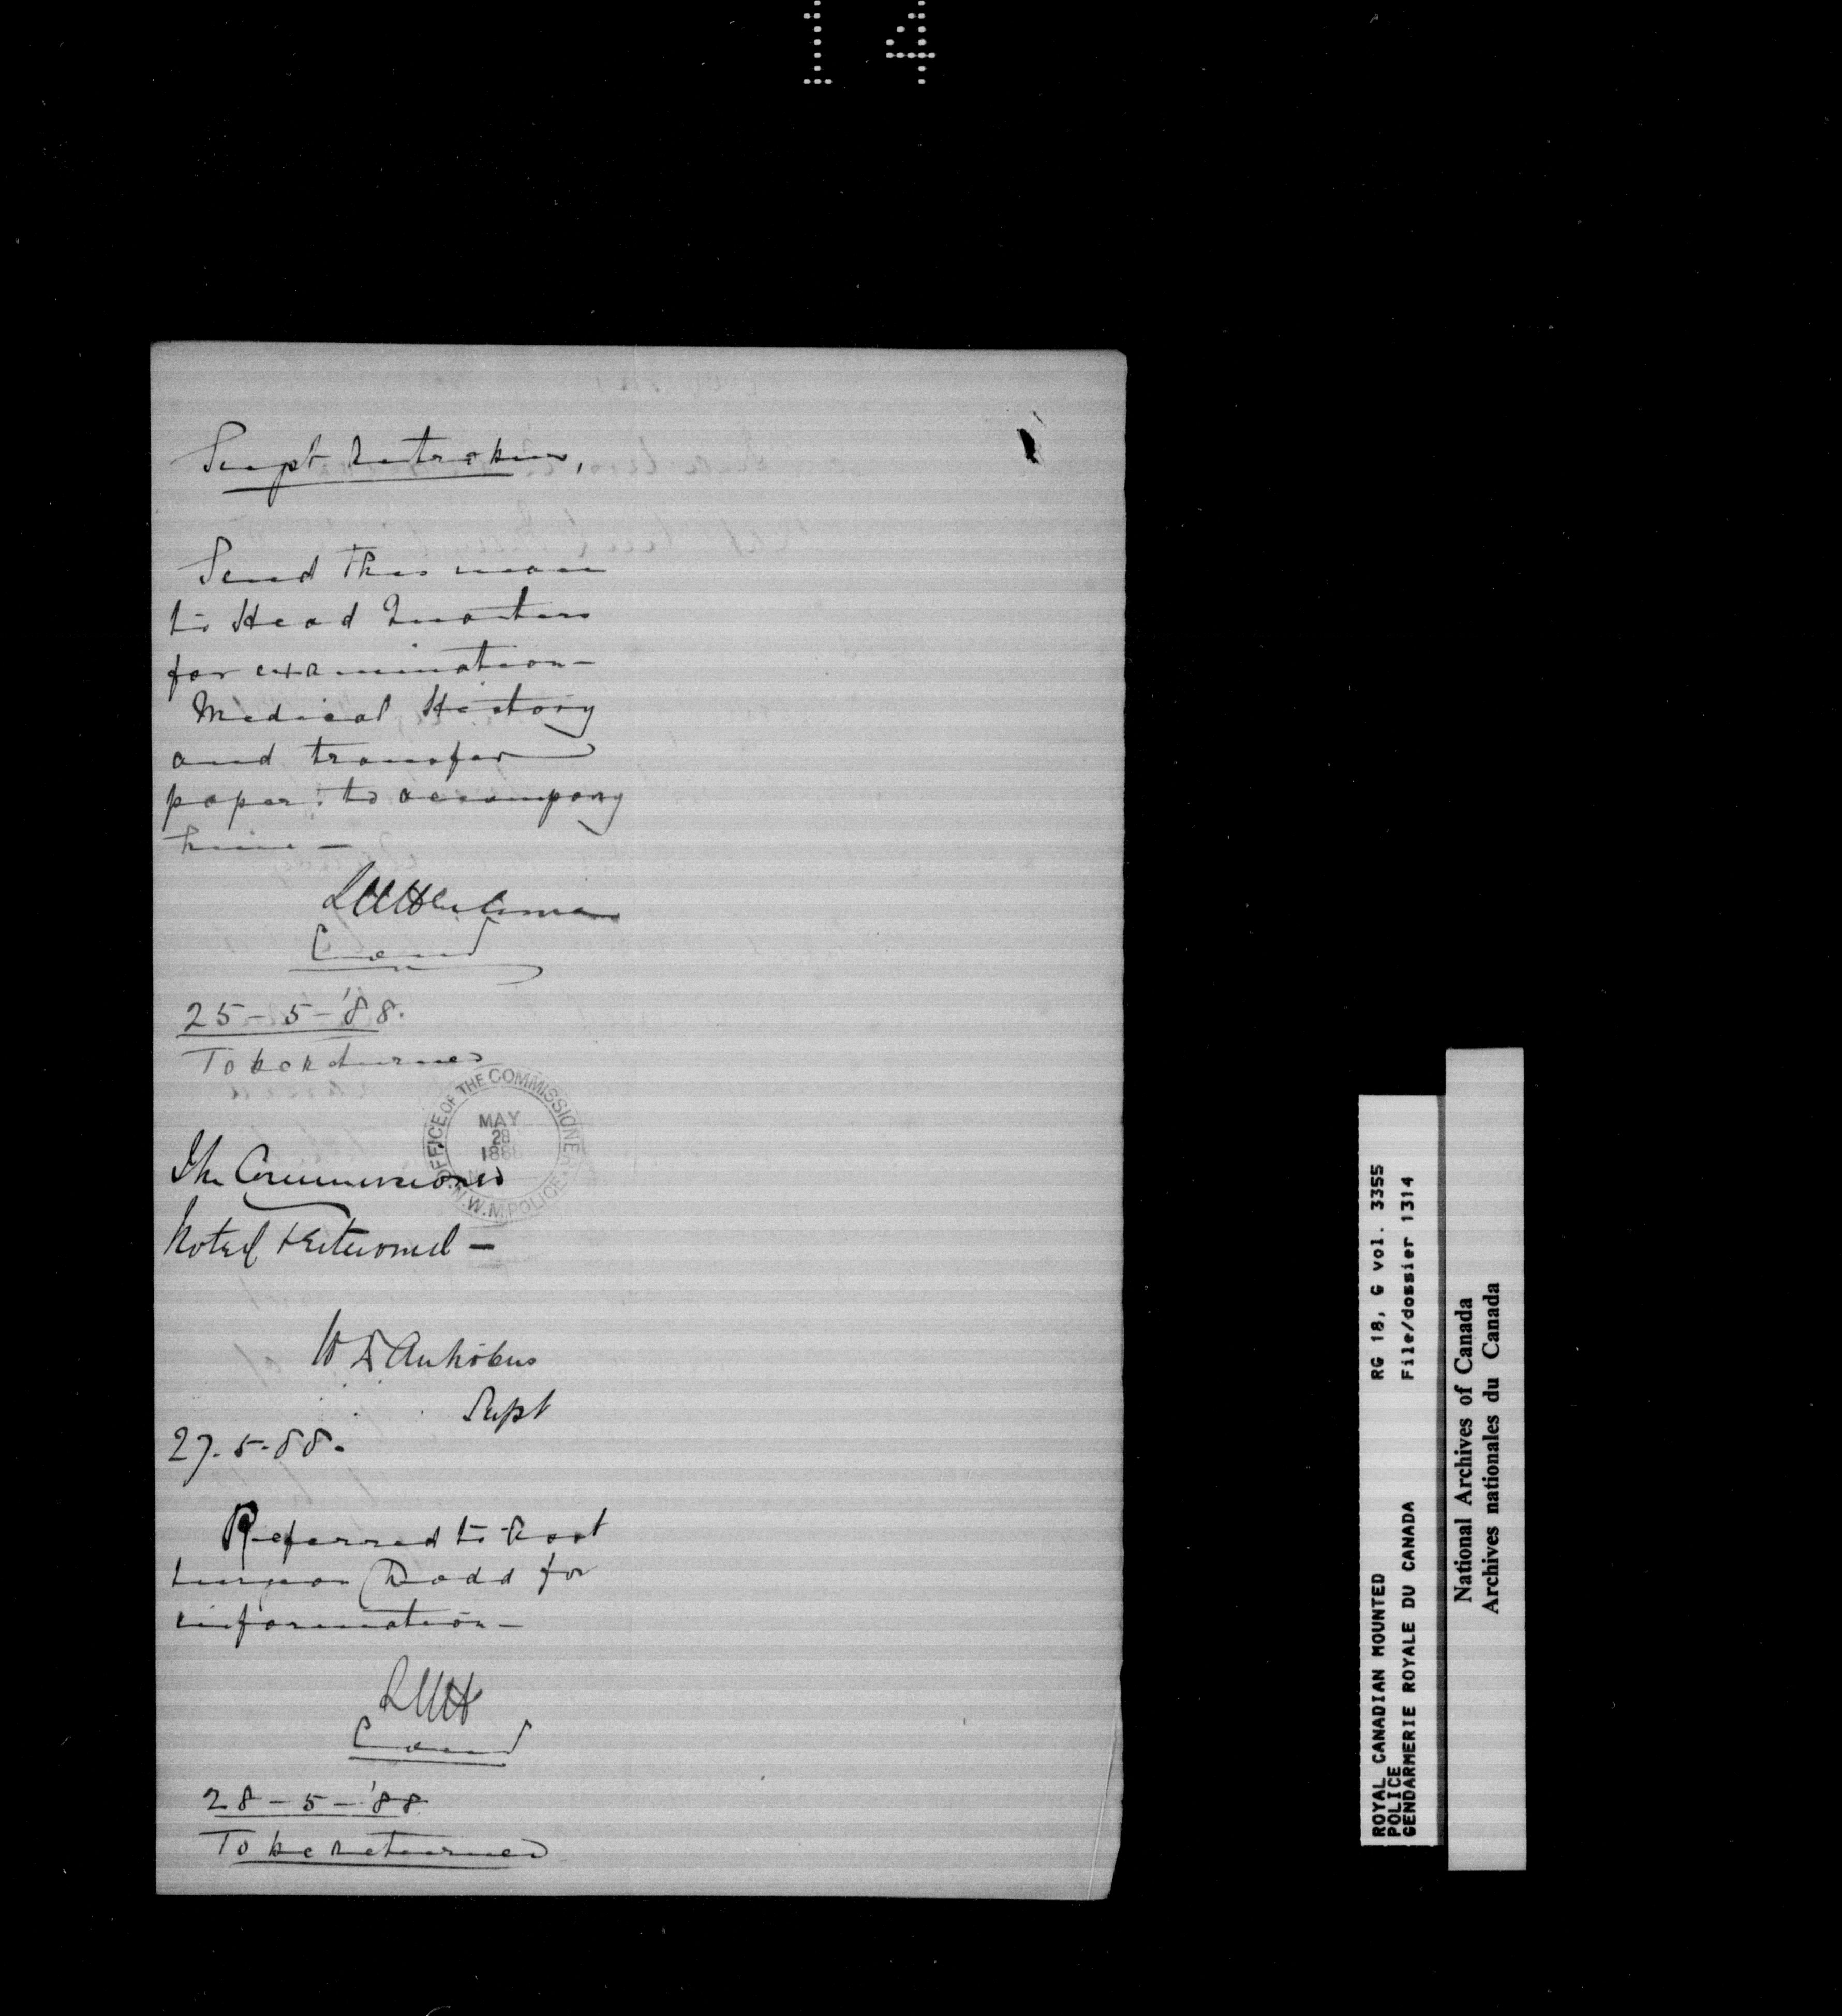 14
Supt Antrobus,
Send this man
to Head Quarters
for examination -
Medical History
and transfer
papers to accompany
him -
LWHerchmer
Comd
25-5-'88.
To be returned
OFFICE OF THE COMMISSIONER
MAY
28
1888
N.W.M. POLICE
The Commissioner
Noted & returned -
W D Antrobus
Supt
27.5.88.
Referred to Asst
Surgeon Dodd for
information -
LWH
Comd
28-5-'88
To be returned
ROYAL CANADIAN MOUNTED RG 18, G vol. 3355
POLICE
GENDARMERIE ROYALE DU CANADA File/dossier 1314
National Archives of Canada
Archives nationales du Canada